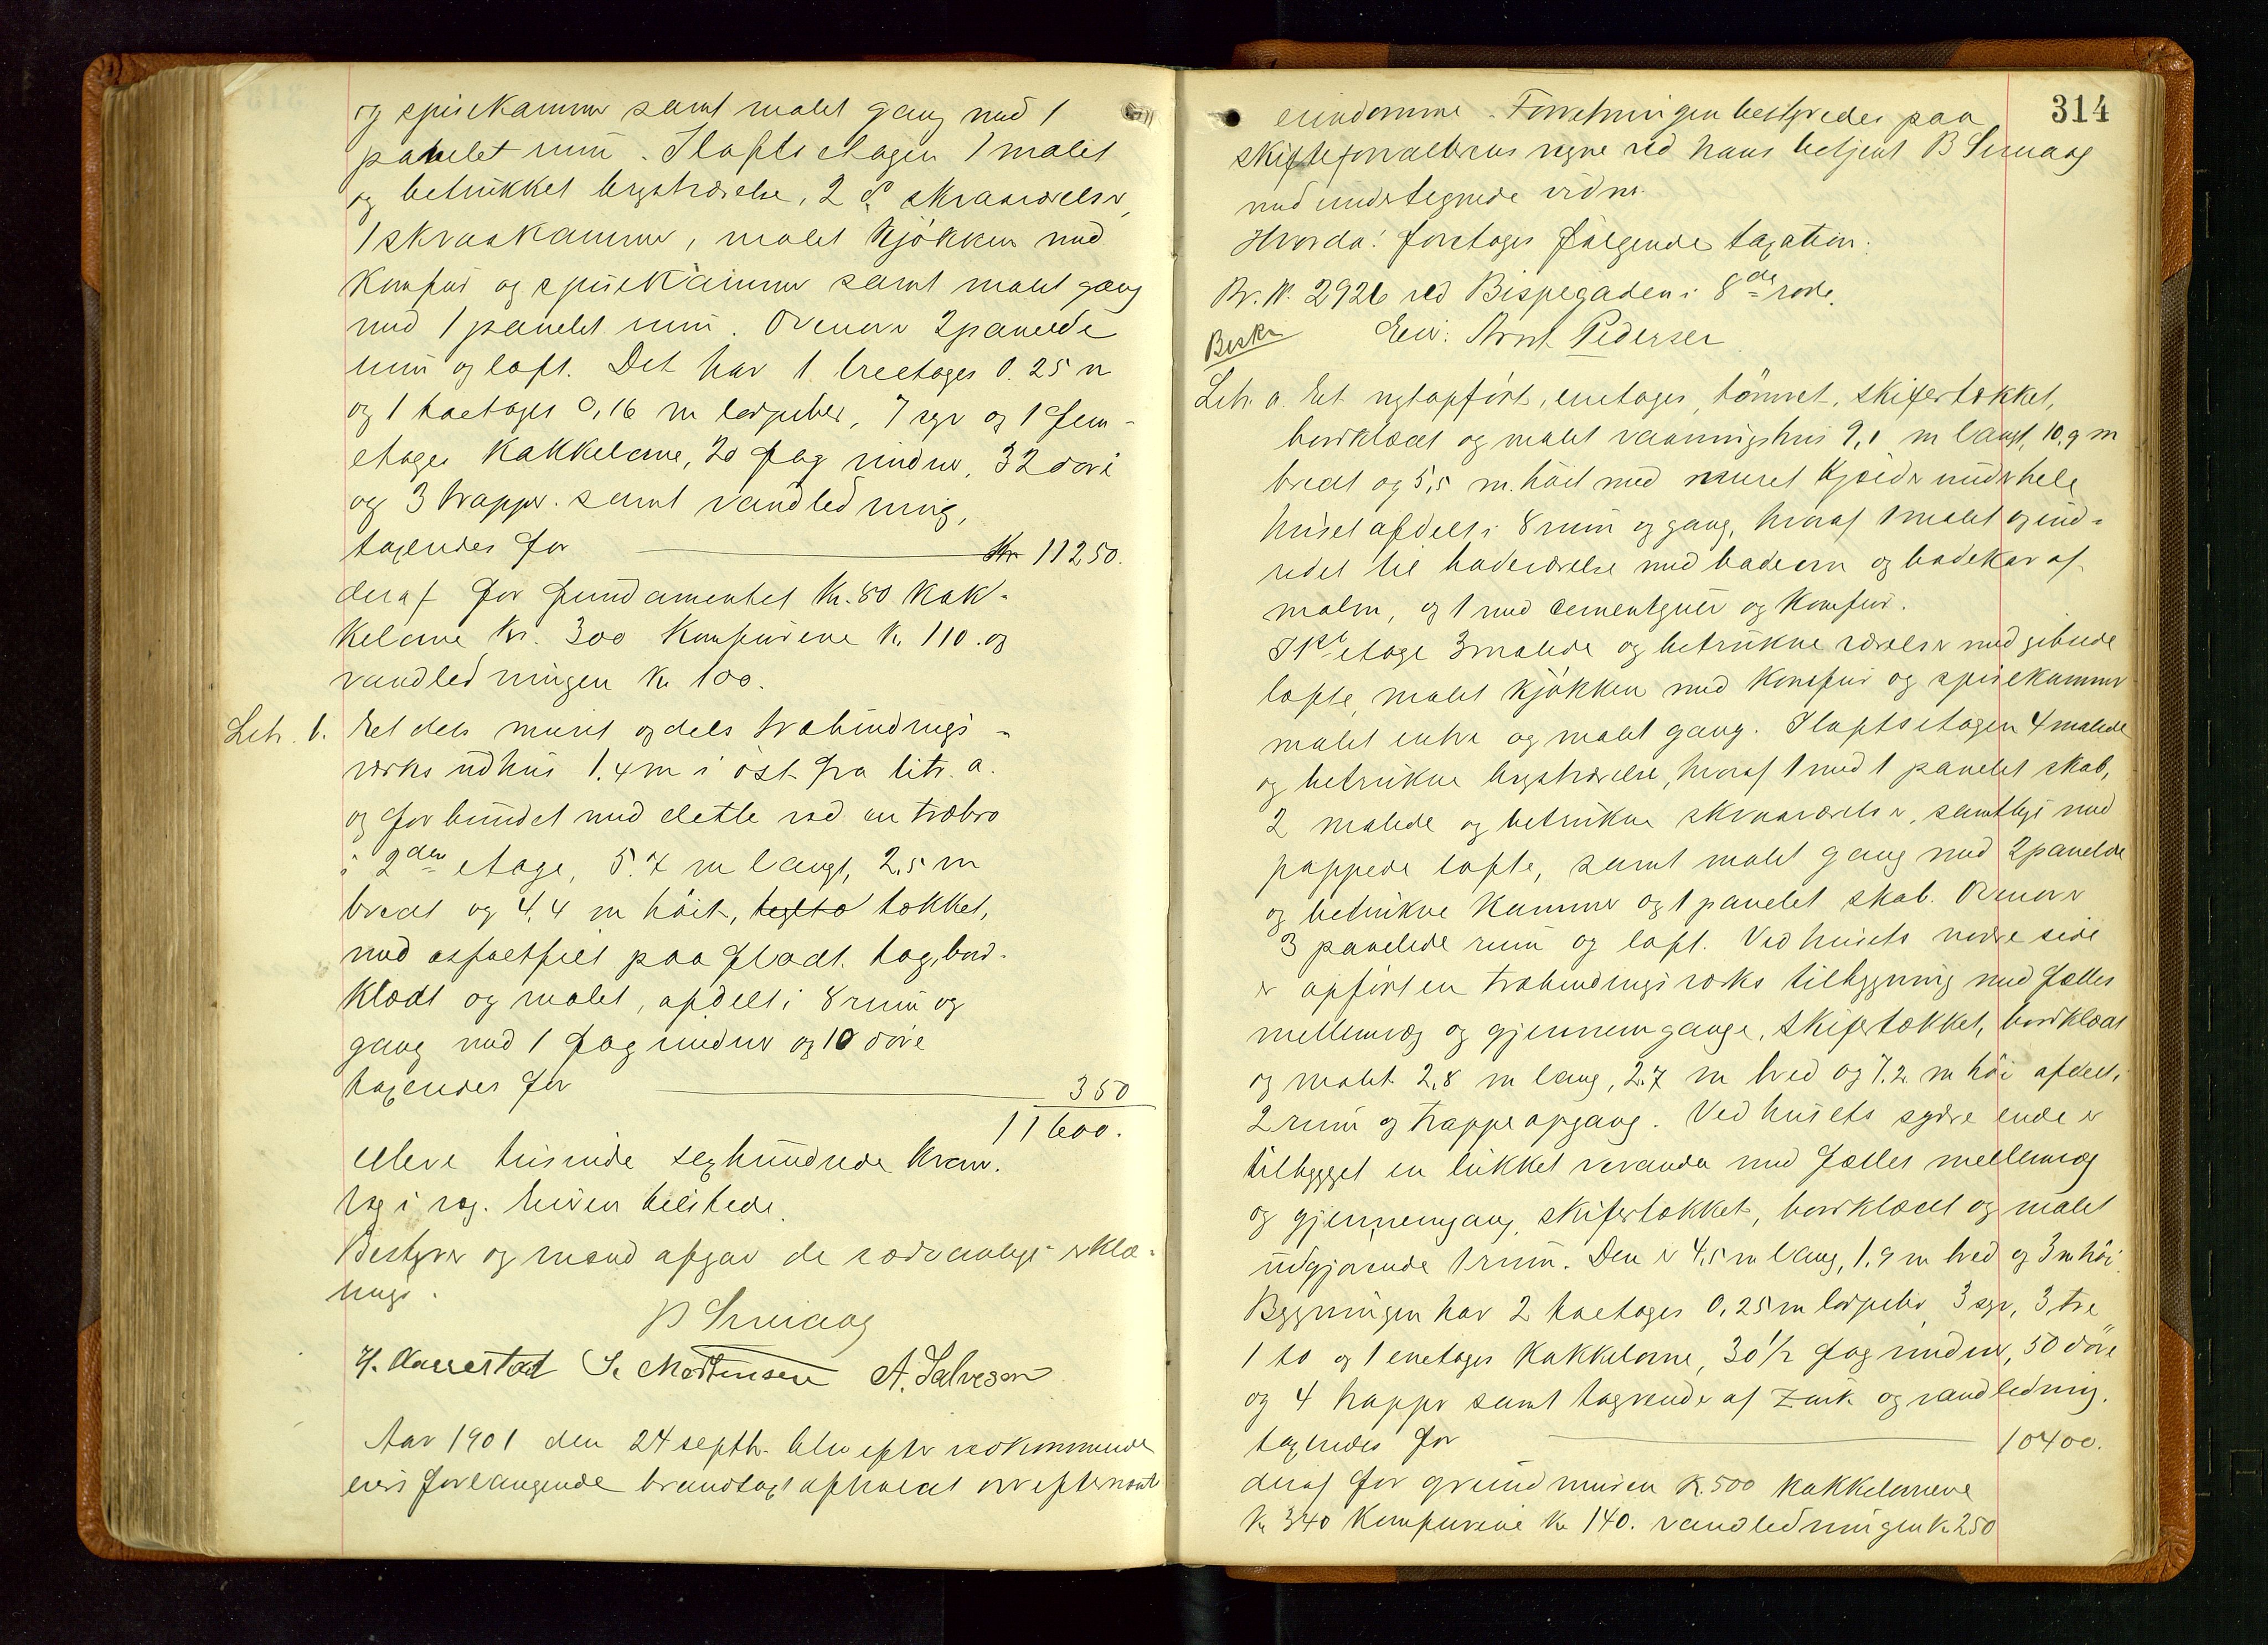 og spisekammer samt malet gang med 1
panelet rum. I loftsetagen 1 malet
og betrukket kvistværelse, 2 do skraaværelser,
1 skraakammer, malet kjøkken med
komfur og spisekammer samt malet gang
med 1 panelet rum. Ovenover 2 panelede
rum og loft. Det har 1 treetages 0.25 m
og 1 toetages 0,16 m lerpiber, 7 syv og 1 fem-
etages kakkelovne, 20 fag vinduer, 32 døre
og 3 trapper. samt vandledning,
taxeredes for Kr 11250.
deraf for fundamentet Kr. 80 kak-
kelovne Kr. 300 komfurene Kr. 110. og
vandledningen Kr 100.
Litr. b. Et dels muret og dels træbindings-
værks udhus 1,4 m i øst fra litr. a.
og forbundet med dette ved en træbro
i 2den etage, 5.7 m langt, 2,5 m
bredt og 4,4 m høit, teglta tækket,
med asfaltfilt paa fladt tag, bord-
klædt og malet, afdelt i 8 rum og
gang med 1 fag vinduer og 10 døre
taxeredes for 350
11600.
elleve tusinde sexhundrede kroner.
Væg i væg. Eieren tilstede.
Bestyrer og mænd afgav de sædvanlige erklæ-
rings.
B Sirnaag
H. Aarrestad S. Mortensen A. Salvesen
Aar 1901 den 24 septbr. blev efter vedkommende
eiers forlangende brandtaxt afholdt over efternævnte
314
eiendomme. Forretningen bestyredes paa
skifteforvalterens vegne ved hans betjent B Sirnaag
med undertegnede vidner.
Hvorda! foretoges følgende taxation.
Br. N. 2926 ved Bispegaden i 8de rode.
Beskr Eier: Arnt Pedersen
Litr. a. Et nytopført, enetages, tømret, skifertækket,
bordklædt og malet vaaningshus 9,1 m langt, 10,9 m
bredt og 5,5 m. høit med muret kjælder under hele
huset afdelt i 8 rum og gang, hvoraf 1 malet og ind-
redet til badeværelse med badeovn og badekar af
malm, og 1 med cementgulv og komfur.
I 1ste etage 3 malede og betrukne værelser med gibsede
lofte, malet kjøkken med komfur og spisekammer
malet entre og malet gang. I loftsetagen 4 malede
og betrukne kvistværelse, hvoraf 1 med 1 panelet skab,
2 malede og betrukne skraaværelser, samtlige med
pappede lofte, samt malet gang med 2 panelede
og betrukne kammer og 1 panelet skab. Ovenover
3 panelede rum og loft. Ved husets nordre side
er opført en træbindingsværks tilbygning med fælles
mellemvæg og gjennemgange, skifertækket, bordklædt
og malet 2,8 m lang, 2,7 m bred og 7.2 m høi afdelt i
2 rum og trappeopgang. Ved husets søndre ende er
tilbygget en lukket veranda med fælles mellemvæg
og gjennemgang, skifertækket, bordklædt og malet
udgjørende 1 rum. Den er 4,5 m lang, 1,9 m bred og 3 m høi.
Bygningen har 2 toetages 0,25 m lerpiber, 3 syv, 3 tre
1 to og 1 enetages kakkelovne, 30 1/2 fag vinduer, 50 døre
og 4 trapper samt tagrender af zink og vandledning.
taxeredes for 10400.
deraf for grundmuren Kr. 500 kakkelovnene
Kr 340 komfurene Kr 140. vandledningen Kr 250